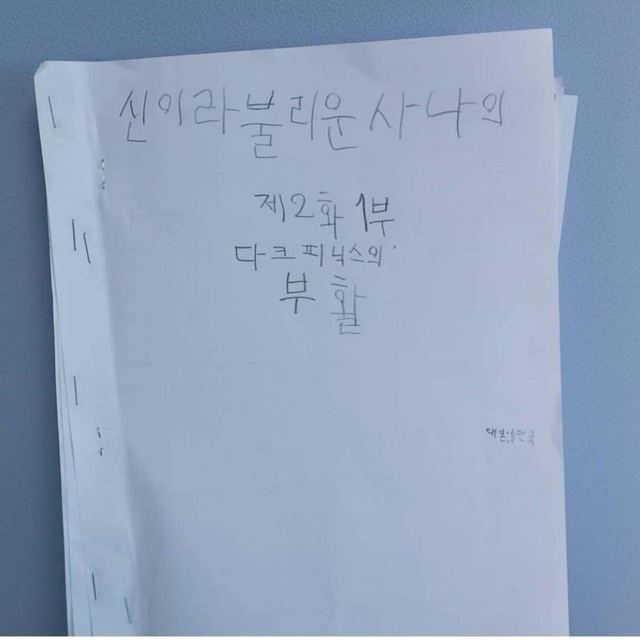 신이라불리운사나의
제2화 1부
다크피닉스의
부활
대한민국